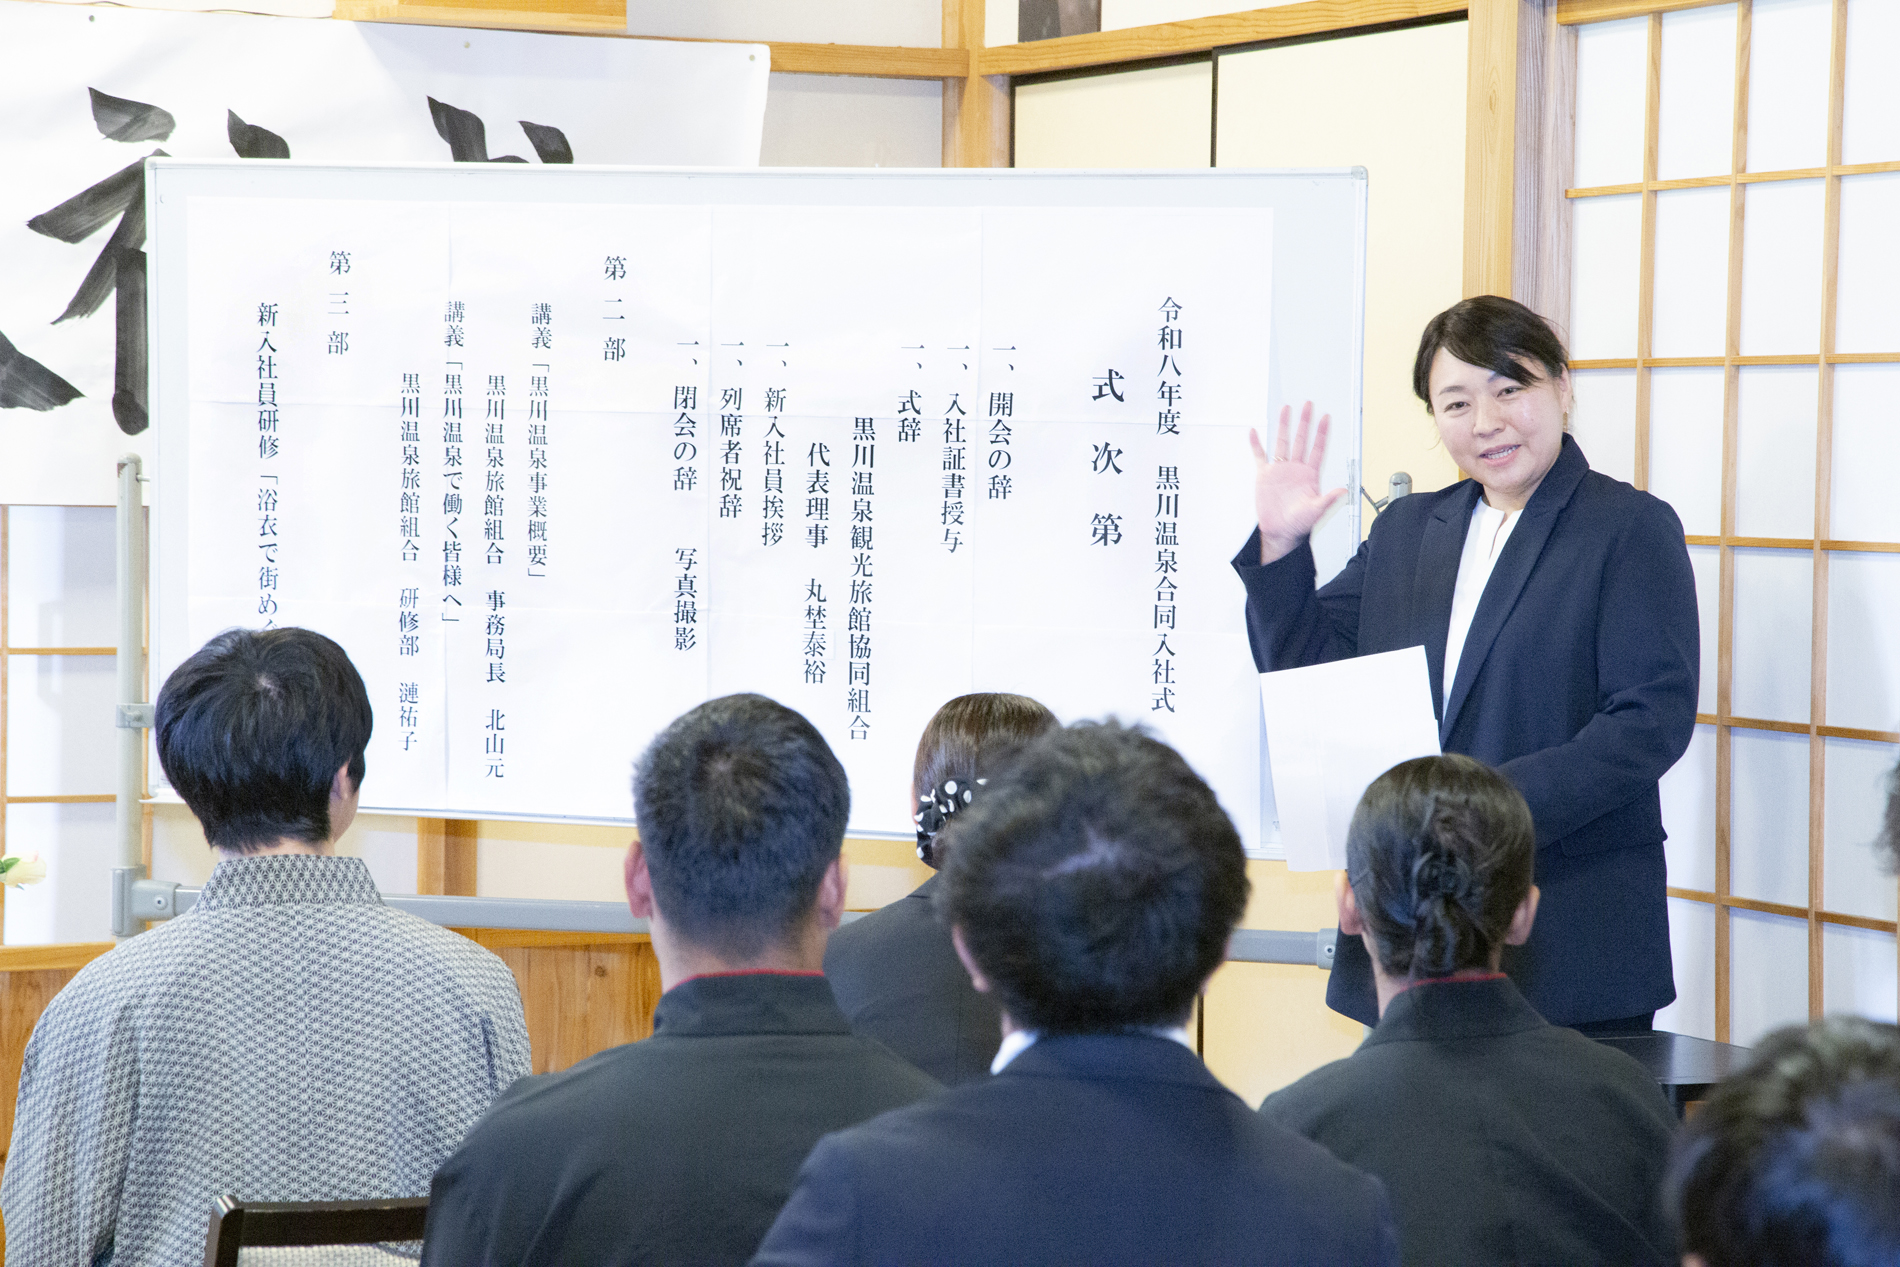 令和八年度 黒川温泉合同入社式
式次第
一、開会の辞
一、入社証書授与
一、式辞
黒川温泉観光旅館協同組合
代表理事 丸埜泰裕
一、新入社員挨拶
一、列席者祝辞
一、閉会の辞 写真撮影
第二部
講義「黒川温泉事業概要」
黒川温泉旅館組合 事務局長 北山元
講義「黒川温泉で働く皆様へ」
黒川温泉旅館組合 研修部 漣祐子
第三部
新入社員研修「浴衣で街め